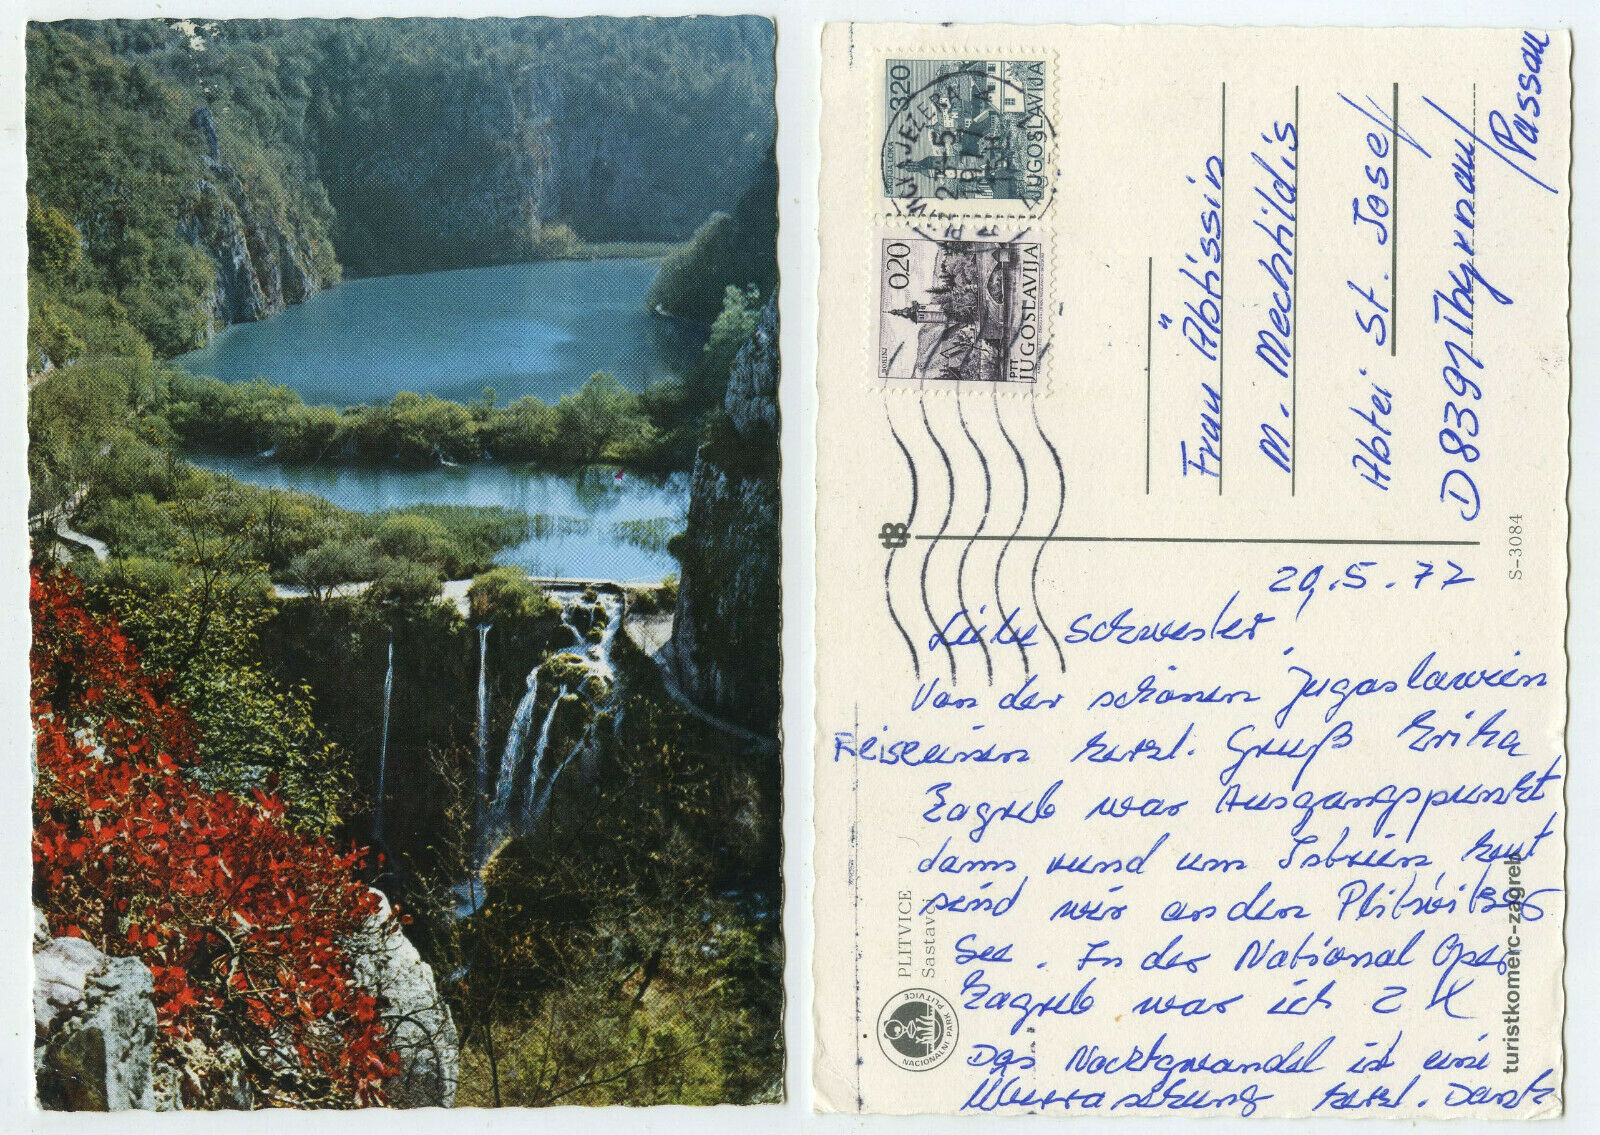 3,20
JUGOSLAVIJA
ŠKOFJA LOKA
JEZERA
23-5
1977
0,20
PTT JUGOSLAVIJA
BOHINJ
Frau Äbtissin
M. Mechthildis
Abtei St. Josef
D 8391 Thyrnau/
/Passau
S-3084
29.5.77
Liebe Schwester!
Von der schönen Jugoslawien
Reise einen herzl. Gruß Erika
Zagreb war Ausgangspunkt
dann rund um Istrien, heut
sind wir an den Plitvitzer
See. In der National Oper
Zagreb war ich 2 X
Das Nachtgewandel ist eine
Überraschung herzl. Dank
PLITVICE
Sastavci
NACIONALNI PARK PLITVICE
turistkomerc-zagreb